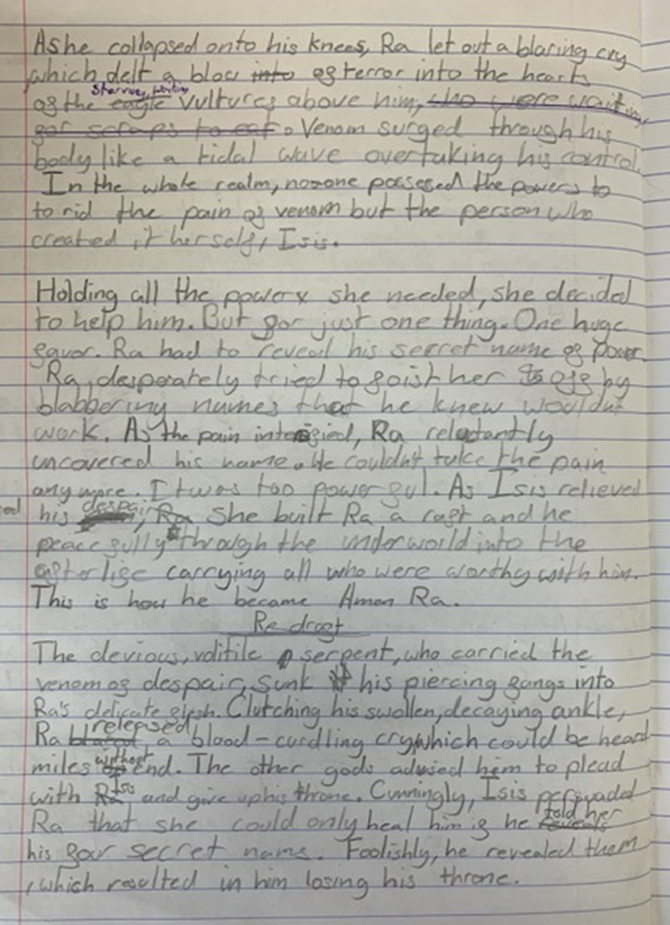 As he collapsed onto his knees, Ra let out a blaring cry
which delt a blow into of terror into the hearts
starving, waiting
of the eagle Vultures above him, who were waiting
for scraps to eat. Venom surged through his
body like a tidal wave overtaking his control.
In the whole realm, no-one possesed the powers to
to rid the pain of venom but the person who
created it herself, Isis.
Holding all the powers she needed, she decided
to help him. But for just one thing. One huge
favor. Ra had to reveal his secret name of power.
Ra, desperately tried to foist her off by
blabbering names that he knew wouldnt
work. As the pain intensified, Ra reluctantly
uncovered his name. He couldn't take the pain
any more. It was too powerful. As Isis relieved
his despair, Ra She built Ra a raft and he
peacefully through the underworld into the
afterlife carrying all who were worthy with him.
This is how he became Amon Ra.
Re draft
The devious, volitile serpent, who carried the
venom of despair, sunk his piercing fangs into
Ra's delicate flesh. Clutching his swollen, decaying ankle,
released
Ra a blood-curdling cry which could be heard
without
miles end. The other gods advised him to plead
with Isis and give up his throne. Cunningly, Isis persuaded
told her
Ra that she could only heal him if he reveals
his four secret name. Foolishly, he revealed them
, which resulted in him losing his throne.